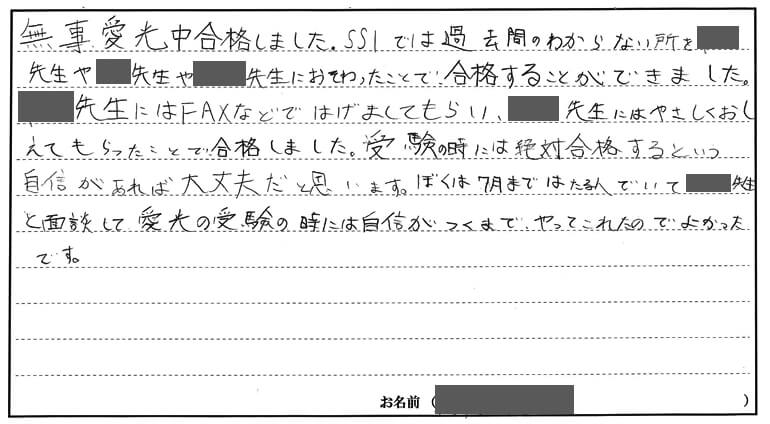 無事愛光中合格しました。SSIでは過去問のわからない所を
先生や先生や先生におそわったことで、合格することができました。
先生にはFAXなどではげましてもらい、先生にはやさしくおし
えてもらったことで合格しました。受験の時には絶対合格するという
自信があれば大丈夫だと思います。ぼくは7月まではたるんでいて先生
と面談して愛光の受験の時には自信がつくまで、やってこれたのでよかった
です。
お名前（ ）